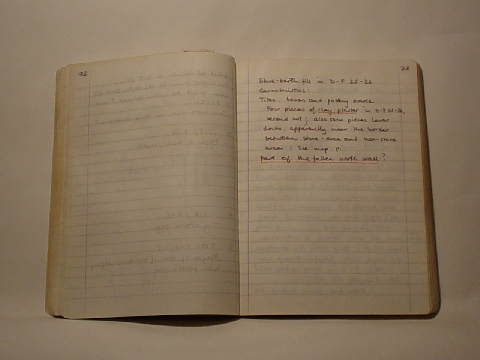 72
73
Stone-earth fill in D-F 25-26
Characteristics:
Tiles, bones and pottery
Four pieces of clay plaster in E-F 25-26,
second cut; also some pieces lower
down, apparently near the border
between stone-area and non-stone
area. See map p.
Part of the fallen north wall?